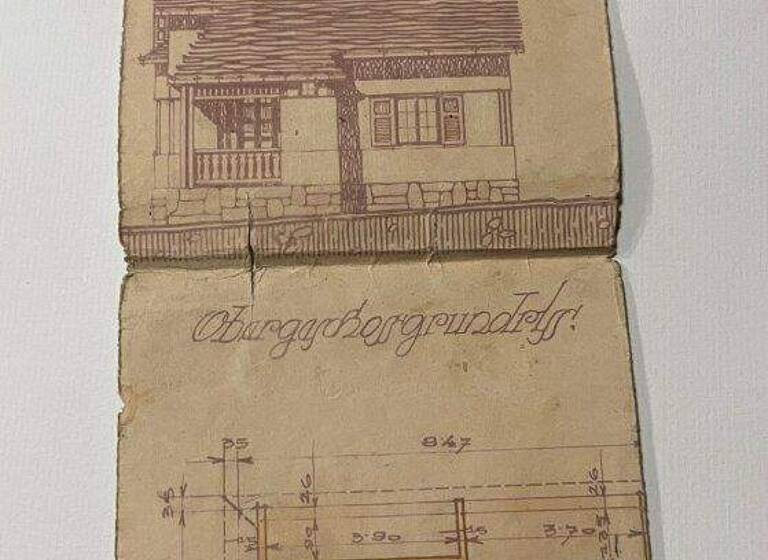 Obergeschoßgrundriß
35
8·47
26
26
35
3·90
15
3·70
90